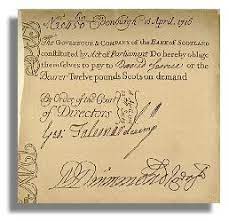 Edenburgh April 1716
The Governour & Company of the Bank of Scotland
constituted by Act of Parliament Do hereby oblige
themselves to pay to David Spence or the
Bearer Twelve pounds Scots on demand
By Order of the Court
of Directors
Drummond